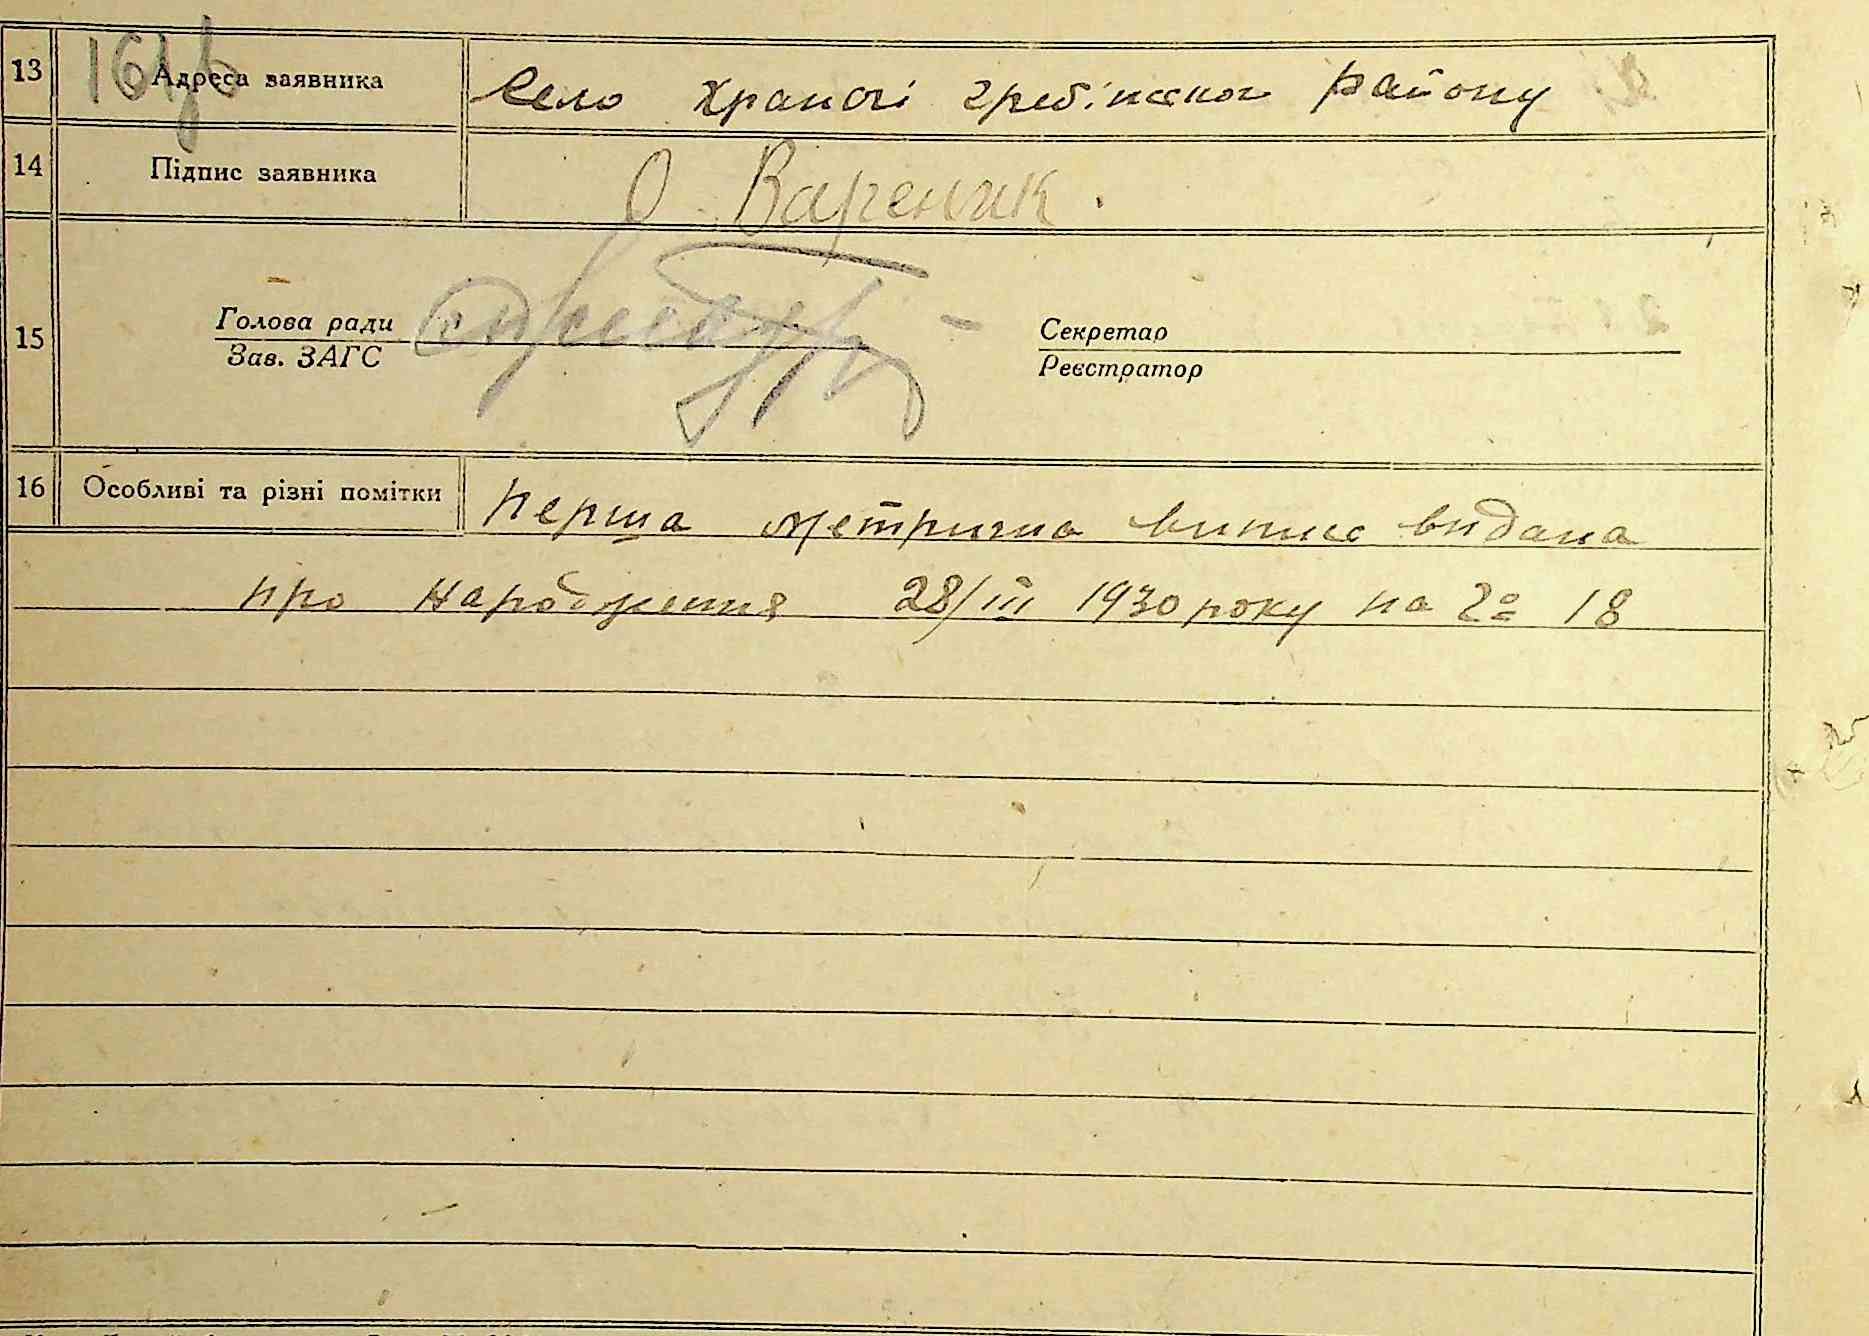 13 Адреса заявника Село Храпачі гребінськог району
14 Підпис заявника О Вареник.
15 Голова ради Секретар
Зав. ЗАГС Реєстратор
16 Особливі та різні помітки Перша метрична випис видана
про народження 28/III 1930 року на № 18